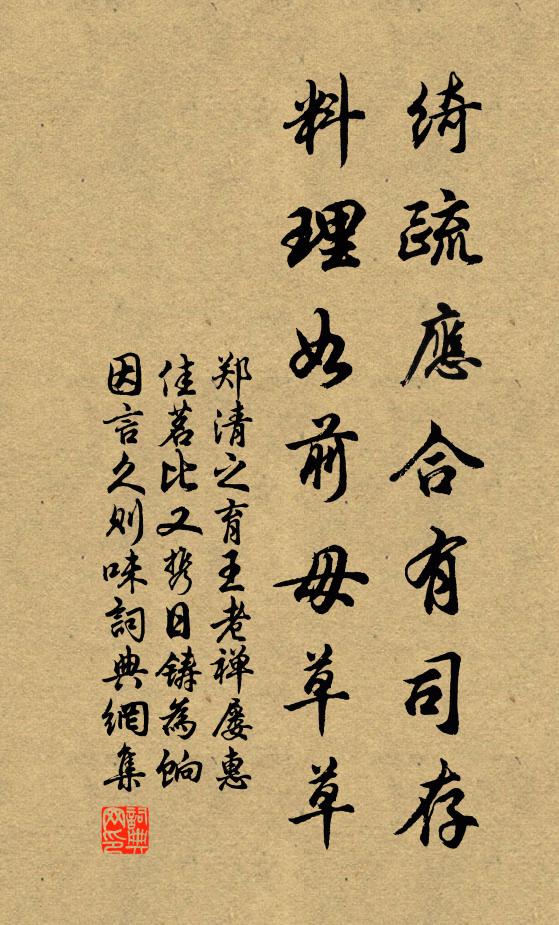 綺疏應合有司存
料理如前毋草草
郑清之育王老禅屡惠
佳茗比又携日铸為餉
因言久则味詞典網集
詞典网印